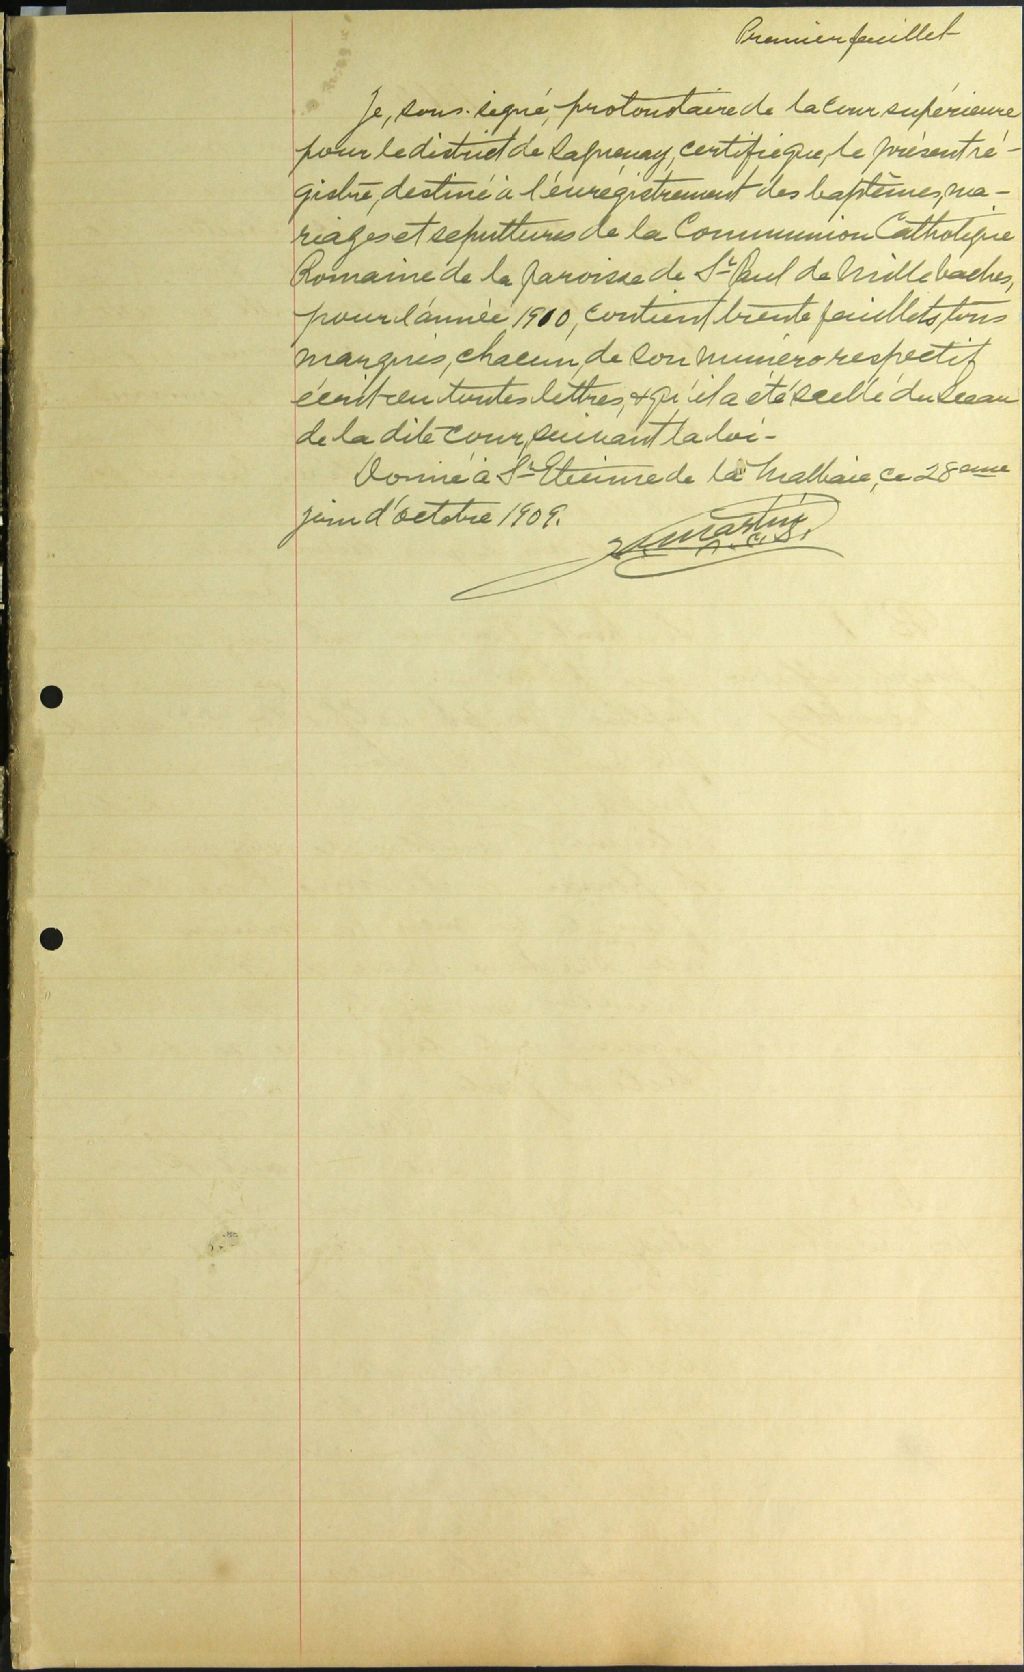 Premier feuillet
Je, sous-signé, protonotaire de la cour supérieure
pour le district de Saguenay, certifie que, le présent ré-
gistre, destiné à l'enrégistrement des baptêmes, ma-
riages et sepultures de la Communion Catholique
Romaine de la paroisse de St Paul de Mille baches,
pour l'année 1910, contient trente feuillets, tous
marqués, chacun, de son numéro respectif
écrit en toutes lettres, & qu'il a été scellé du sceau
de la dite cour, suivant la loi -
Donné à St Etienne de la Malbaie, ce 28eme
jour d'octobre 1909.
Martin